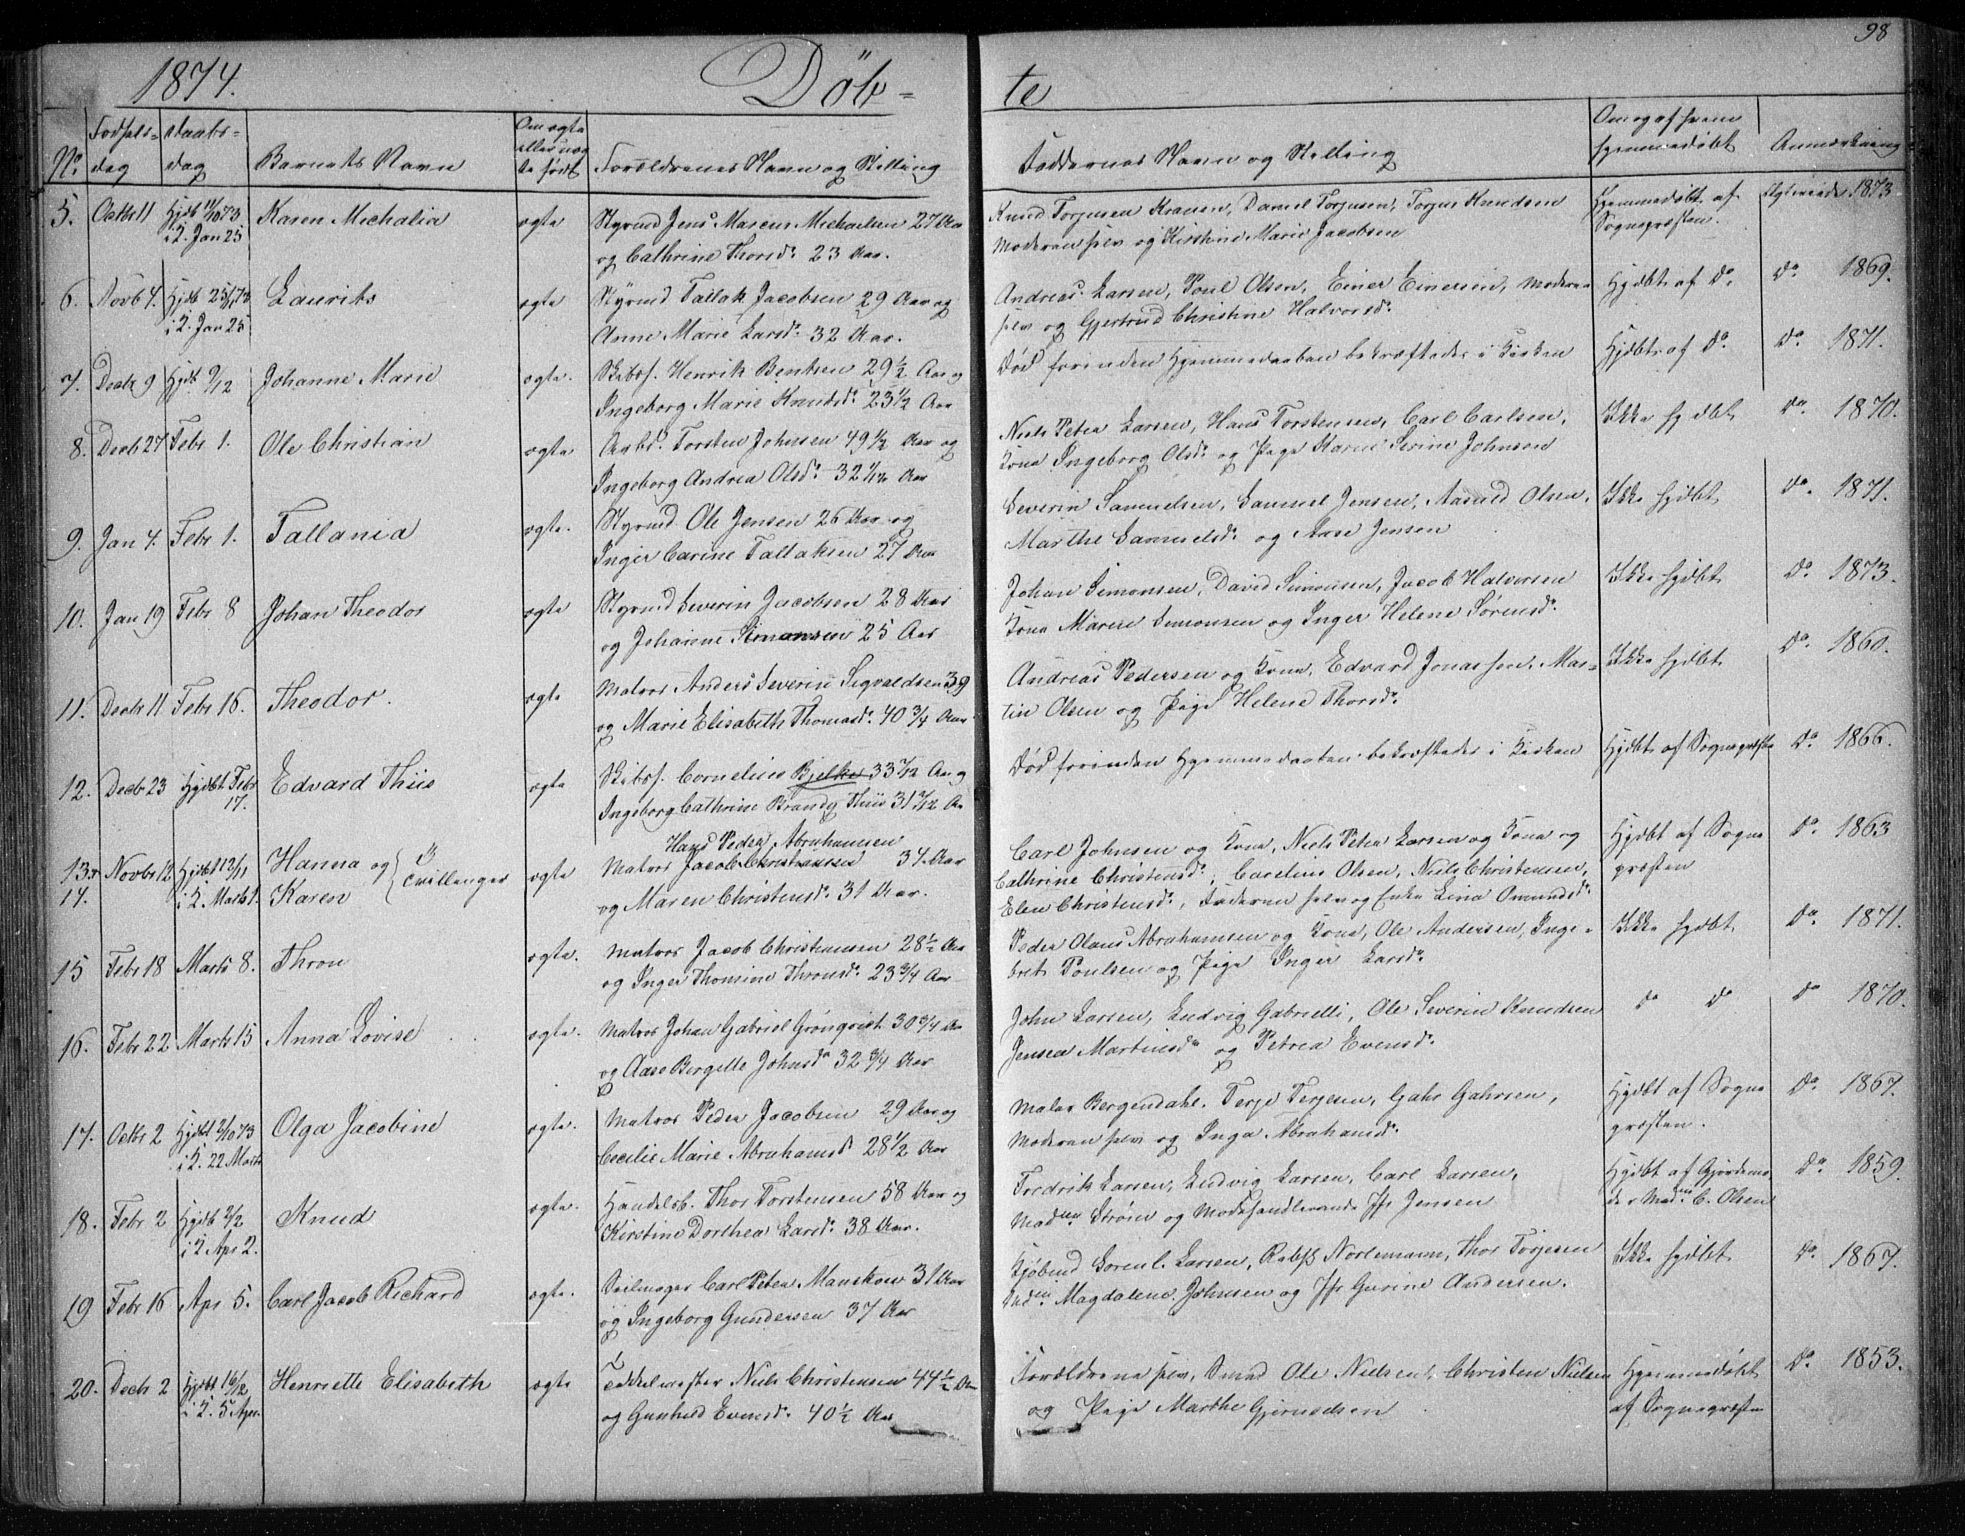 98
1874. Döb- te
No. Fødsels-dag Daabs-dag Barnets Navn Om ægte eller uægte født Forældrenes Navn og Stilling Faddernes Navn og Stilling Om og af hvem hjemmedøbt Anmærkning
5. Octbr 11 Hjdb 11/10 73 i K. Jan 25 Karen Michalia ægte Styrmd Jens Marcus Michaelsen 27 Aar
og Cathrine Thorsdr 23 Aar.
Knud Torjusen Kraven, Daniel Torjusen, Torjus Knudsen
Moderen selv og Kirstine Marie Jacobsen
Hjemmedøbt af Sognepræsten. 1873
6. Novb 4. i K. Jan 25 Laurits ægte Styrmd Tallak Jacobsen 29 Aar og
Anne Marie Larsdr 32 Aar.
Andreas Larsen, Poul Olsen, Einer Einersen, Moderen
selv og Gjertrud Christine Halvorsdr
Hjdbt af Do Do 1869.
7. Decbr 9 Hjdb. 9/12 Johanne Marie ægte. Skibsf. Henrik Bentsen 29 1/2 Aar og
Ingeborg Marie Knudsdr 23 1/2 Aar
Død forinden Hjemmedaaben bekræftedes i Kirken
Hjdbt af Do Do 1871.
8. Decbr 27 Febr 1. Ole Christian ægte. Arbd. Torsten Johnsen 49 1/2 Aar og
Ingeborg Andrea Olsdr 32 1/12 Aar
Niels Peter Larsen, Hans Torstensen, Carl Carlsen,
Kone Ingeborg Olsdr og Pige Karen Serine Johnsen
Ikke hjdbt Do 1870.
9. Jan 4. Febr 1. Tallania ægte. Styrmd Ole Jensen 26 Aar og
Inger Carine Tallaksen 27 Aar
Severin Samuelsen, Samuel Jensen, Aanuld Olsen,
Marthe Samuelsdr og Aase Jensen
Ikke hjdbt Do 1871.
10. Jan 19 Febr 8 Johan Theodor ægte Styrmd Severin Jacobsen 28 Aar
og Johanne Simonsen 25 Aar
Johan Simonsen, David Simonsen, Jacob Halvorsen
Kone Maren Simonsen og Inger Helene Sørensdr.
Ikke hjdbt Do 1873.
11. Decbr 11 Febr 16. Theodor. ægte Matros Anders Severin Sigvaldsen 39
og Marie Elisabeth Thomasdr 40 3/4 Aar
Andreas Pedersen og Kone, Edvard Jonassen, Mar-
tin Olsen og Pige Helene Thorsdr
Ikke hjdbt Do 1860.
12. Decbr 23 Hjdbt Febr 17. Edvard Thiis ægte Skibsf. Cornelius Bjelker 33 7/12 Aar og
Ingeborg Cathrine Brandy Thiis 31 3/12 Aar
Død forinden Hjemmedaaben bekræftedes i Kirken
Hjdbt af Sognepræsten Do 1866.
Hans Peder Abrahamsen
13 & 14. Novbr 12 Hjdbt 12/11 i K. Marts 1. Hanna og Karen } Tvillinger ægte Matros Jacob Christiansen 34 Aar
og Maren Christensdr 31 Aar.
Carl Johnsen og Kone, Niels Peter Larsen og Kone og
Cathrine Christensdr, Carelius Olsen, Niels Christensen,
Elen Christensdr, Faderen selv og Enke Lina Omundsdr
Hjdbt af Sognepræsten Do 1863
15 Febr 18 Marts 8. Thron ægte. Matros Jacob Christiansen 28 1/2 Aar
og Inger Thomine Thronsdr 23 3/4 Aar
Peder Olaus Abrahamsen og Kone, Ole Andersen, Inge-
bret Poulsen og Pige Inger Larsdr
Ikke hjdbt Do 1871.
16. Febr 22 Marts 15 Anna Lovise ægte. Matros Johan Gabriel Grönqvist 30 3/4 Aar
og Aase Bergette Johnsdr 32 3/4 Aar
John Larsen, Ludvig Gabrielli, Ole Severin Knudsen
Jensea Martinsdr og Petrea Evensdr
do do do 1870.
17. Octbr 2 Hjdbt 2/10 73 i K. 22 Marts Olga Jacobine ægte. Matros Peder Jacobsen 29 Aar og
Cecilie Marie Abrahamsd 28 1/2 Aar
Maler Bergendahl, Terje Terjesen, Gahr Gahrsen,
Moderen selv og Inga Abrahamsdr
Hjdbt af Sognepræsten. Do 1867.
18. Febr 2 Hjdb 2/2 i K Apr 2. Knud ægte. Handelsb. Thor Torstensen 58 Aar og
Kirstine Dorthea Larsdr 38 Aar.
Fredrik Larsen, Ludvig Larsen, Carl Larsen,
Madm Strøm og Modehandlerinde Jfr Jensen
Hjdbt af Gjordemode Madm C. Olsen Do 1859.
19 Febr 16 Apr 5. Carl Jacob Richard ægte. Seilmager Carl Peter Manskow 31 Aar
og Ingeborg Gundersen 37 Aar
Kjøbmd Sorenl. Larsen, Rebsl Nortemann, Thor Torjesen
Madm Magdalene Johnsen og Jfr Gurine Andersen.
Ikke hjdbt Do 1867.
20. Decbr 2 Hjdbt 16/12 i K. 5 Apr. Henriette Elisabeth ægte Niels Christensen 44 1/2 Aar
og Gunhild Evensdr 40 1/2 Aar
Forældrene selv, Smed Ole Nielsen, Christen Nielsen
og Pige Marthe Gjerulsen
Hjemmedøbt af Sognepræsten Do 1853.